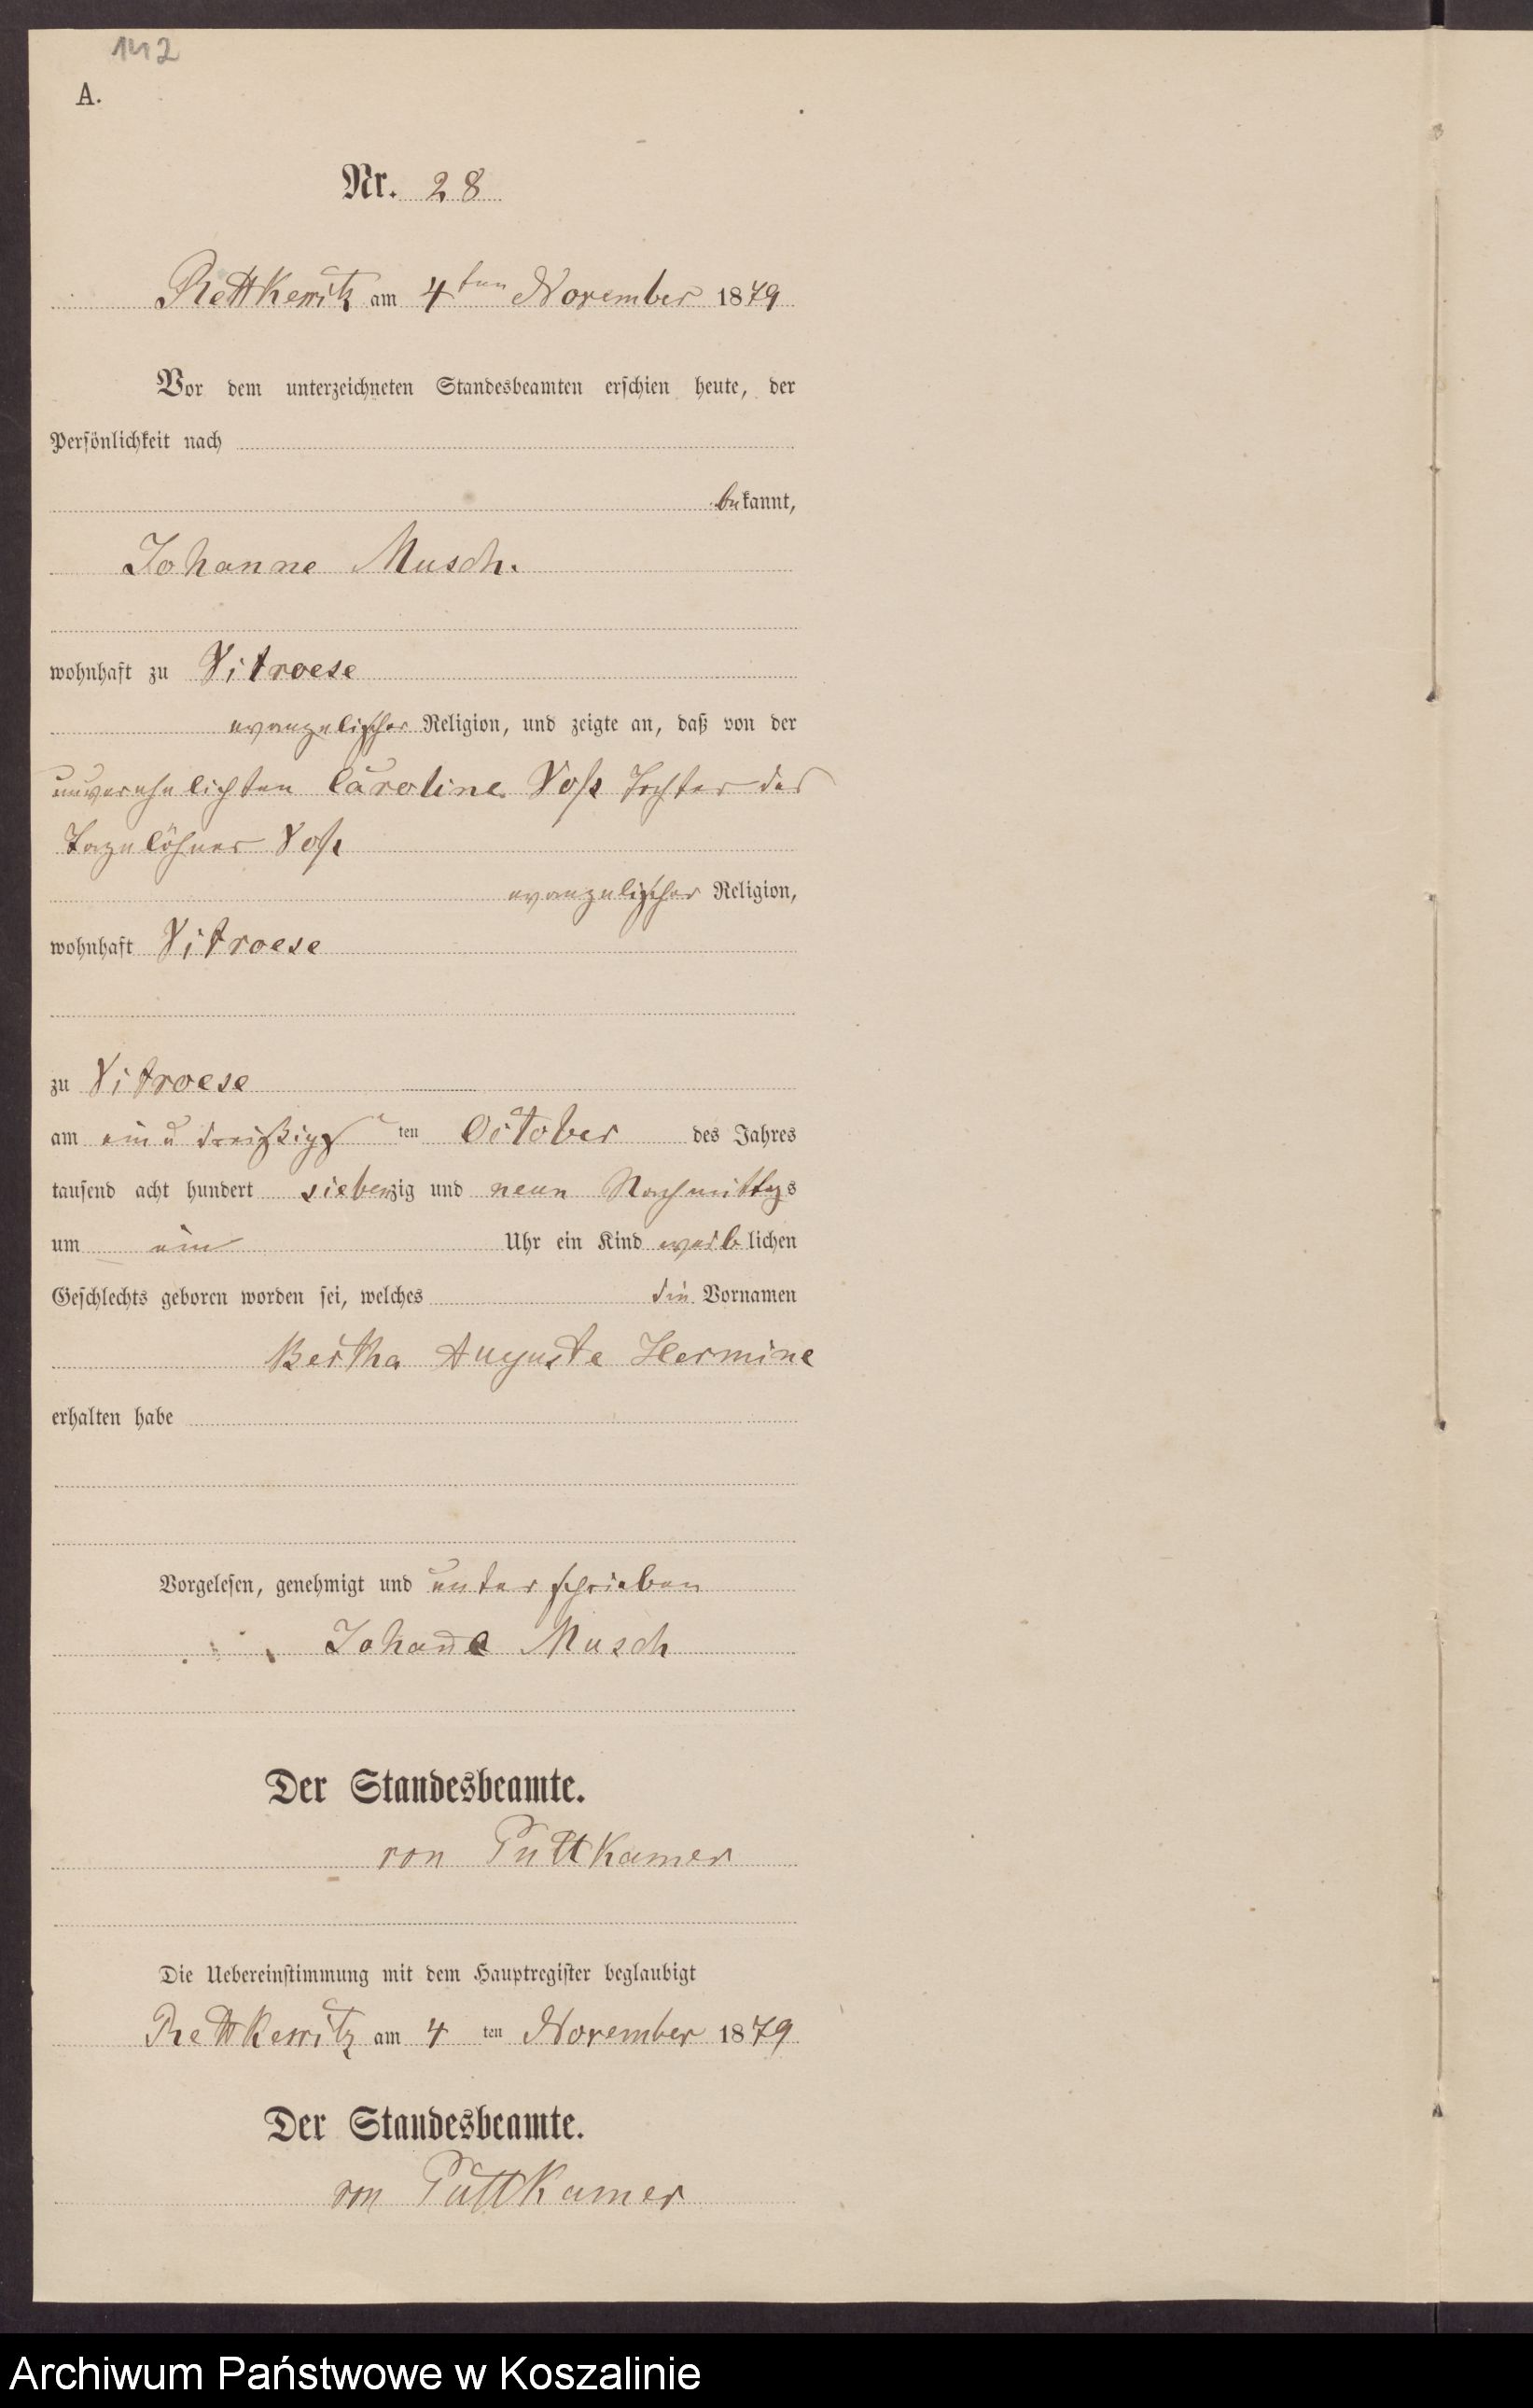 142
A.
Nr. 28
Rettkewitz am 4ten November 1879
Vor dem unterzeichneten Standesbeamten erschien heute, der
Persönlichkeit nach
bekannt,
Johanne Musch.
wohnhaft zu Vitroese
evangelischer Religion, und zeigte an, daß von der
unverehelichten Caroline Voß Tochter des
Tagelöhner Voß
evangelischer Religion,
wohnhaft Vitroese
zu Vitroese
am ein u dreißigsten October des Jahres
tausend acht hundert siebenzig und neun Nachmittags
um ein Uhr ein Kind weiblichen
Geschlechts geboren worden sei, welches die Vornamen
Bertha Auguste Hermine
erhalten habe
Vorgelesen, genehmigt und unterschrieben
Johan̄e Musch
Der Standesbeamte.
von Puttkamer
Die Uebereinstimmung mit dem Hauptregister beglaubigt
Rettkewitz am 4 ten November 1879
Der Standesbeamte.
von Puttkamer
Archiwum Państwowe w Koszalinie